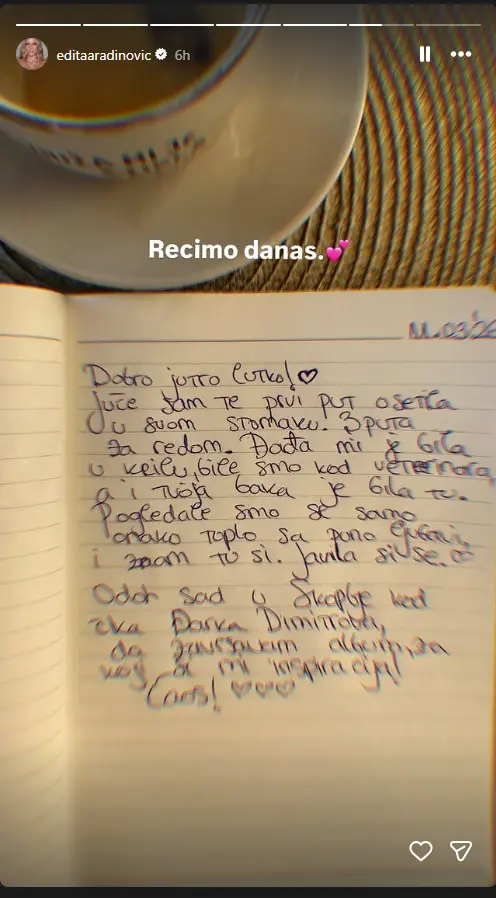 editaaradinovic 6h
Recimo danas.💕
11.03'26
Dobro jutro lutko!♡
Juče sam te prvi put osetila
u svom stomaku. 3 puta
za redom. Dađa mi je bila
u krilu, bile smo kod veterinara,
a i tvoja baka je bila tu.
Pogledale smo se samo
onako toplo sa puno ljubavi,
i znam tu si. Javila si se.♡
Odoh sad u Skoplje kod
čika Darka Dimitrova,
da završavam album, za
koji si mi inspiracija!
Caos! ♡♡♡